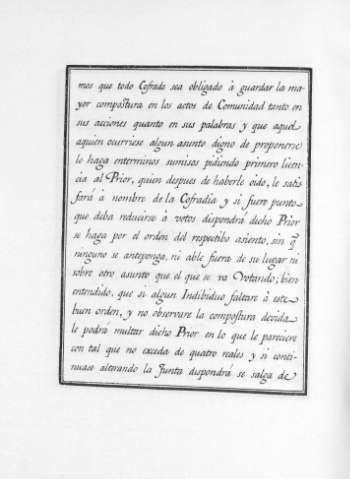 mos que todo Cofrade sea obligado à guardar la ma-
yor compostura en los actos de Comunidad tanto en
sus acciones quanto en sus palabras y que aquel
aquien ocurriese algun asunto digno de proponerse
lo haga enterminos sumisos pidiendo primero licen-
cia al Prior, quien despues de haberle oido, le satis
fará à nombre de la Cofradia y si fuere punto
que deba reducirse à votos dispondrá dicho Prior
se haga por el orden del respectibo asiento, sin q̃
ninguno se anteponga, ni able fuera de su lugar ni
sobre otro asunto que el que se va Votando; bien
entendido, que si algun Indibiduo faltare à este
buen orden, y no observare la compostura devida
le podrá multar dicho Prior en lo que le pareciere
con tal que no exceda de quatro reales y si conti-
nuase alterando la Junta dispondrá se salga de